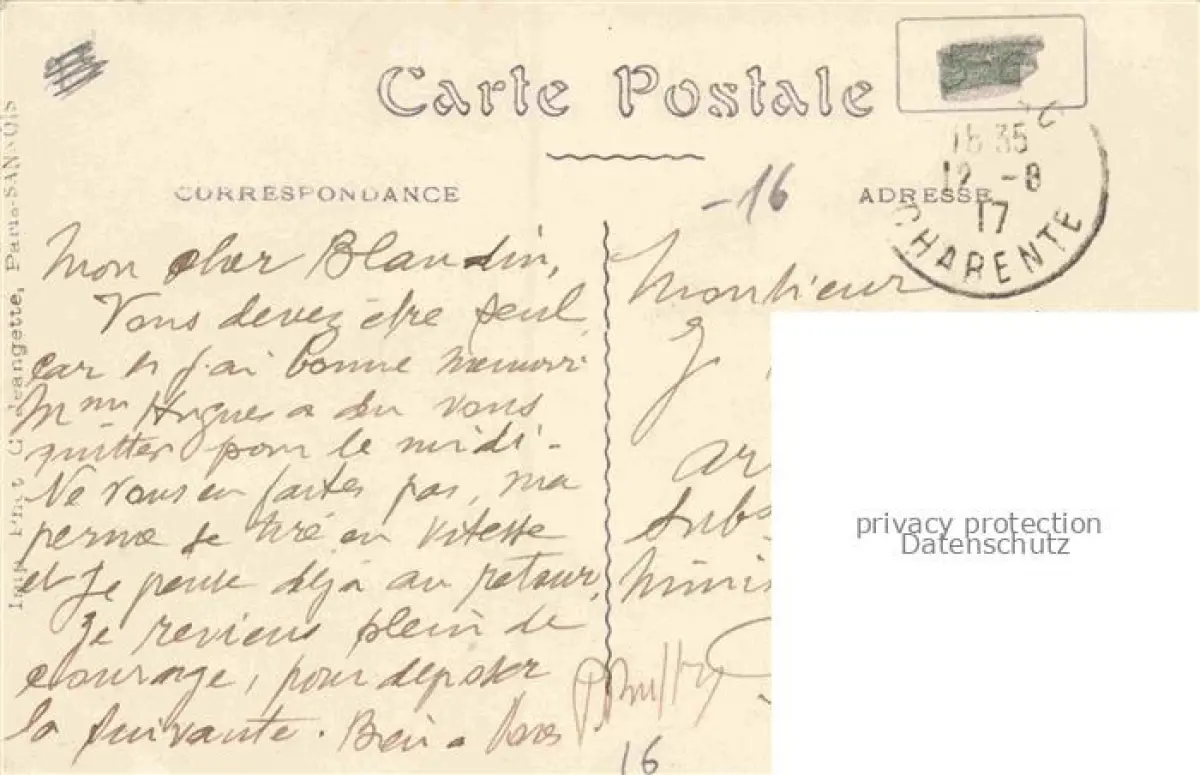 Carte Postale
CORRESPONDANCE
ADRESSE
-16
16 35
12 -8
17
CHARENTE
Mon cher Blandin,
Vous devez être seul,
car si j'ai bonne memoire
Mme Hugues a du vous
quitter pour le midi -
Ne vous en faites pas, ma
perme se tire en vitesse
et je pense déjà au retour.
Je reviens plein de
courage, pour déposer
la suivante. Bien a vous
Monsieur
J
ar
subs
Minis
16
Paris-SANNOIS
privacy protection
Datenschutz